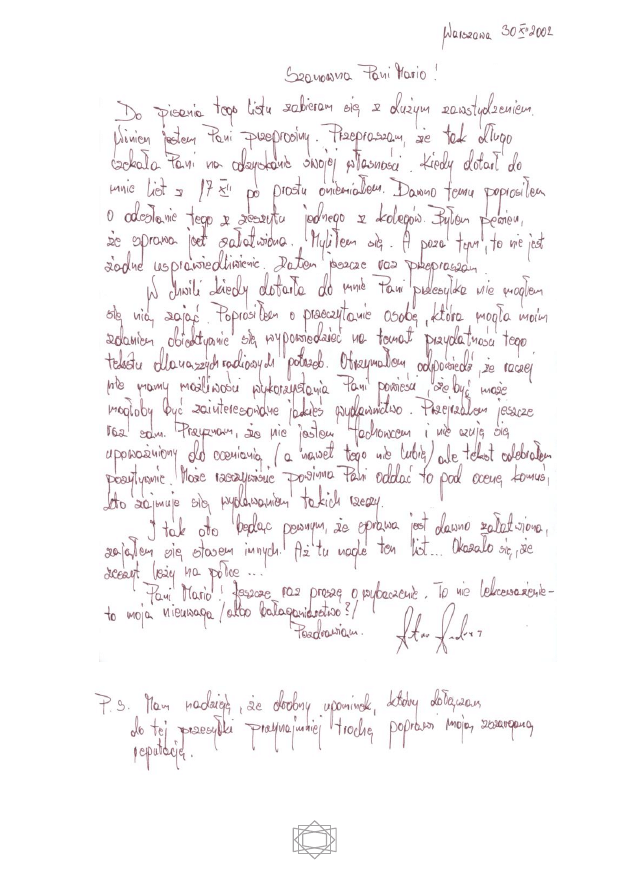 Warszawa 30 XII 2002
Szanowna Pani Mario!
Do pisania tego listu zabieram się z dużym zawstydzeniem.
Winien jestem Pani przeprosiny. Przepraszam, że tak długo
czekała Pani na odzyskanie swojej własności. Kiedy dotarł do
mnie list z 17 XII po prostu oniemiałem. Dawno temu poprosiłem
o odesłanie tego z zeszytu jednego z kolegów. Byłem pewien,
że sprawa jest załatwiona. Myliłem się. A poza tym, to nie jest
żadne usprawiedliwienie. Zatem jeszcze raz przepraszam.
W chwili kiedy dotarła do mnie Pani przesyłka nie mogłem
się nią zająć. Poprosiłem o przeczytanie osobę, która mogła moim
zdaniem obiektywnie się wypowiedzieć na temat przydatności tego
tekstu dla naszych radiowych potrzeb. Otrzymałem odpowiedź, że raczej
nie mamy możliwości wykorzystania Pani powieści, że być może
mogłoby być zainteresowane jakieś wydawnictwo. Przejrzałem jeszcze
raz sam. Przyznam, że nie jestem fachowcem i nie czuję się
upoważniony do oceniania, (a nawet tego nie lubię) ale tekst odebrałem
pozytywnie. Może rzeczywiście powinna Pani oddać to pod ocenę komuś,
kto zajmuje się wydawaniem takich rzeczy.
I tak oto będąc pewnym, że sprawa jest dawno załatwiona,
zająłem się stosem innych. Aż tu nagle ten list... Okazało się, że
zeszyt leży na półce ...
Pani Mario! Jeszcze raz proszę o wybaczenie. To nie lekceważenie -
to moja nieuwaga /albo bałaganiarstwo?/
Pozdrawiam.
P.S. Mam nadzieję, że drobny upominek, który dołączam
do tej przesyłki przynajmniej trochę poprawi moją zszarganą
reputację.